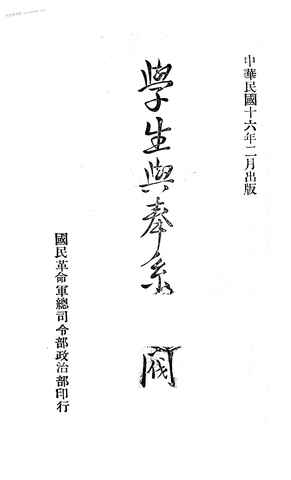 中華民國十六年二月出版
學生與奉系閥
國民革命軍總司令部政治部印行